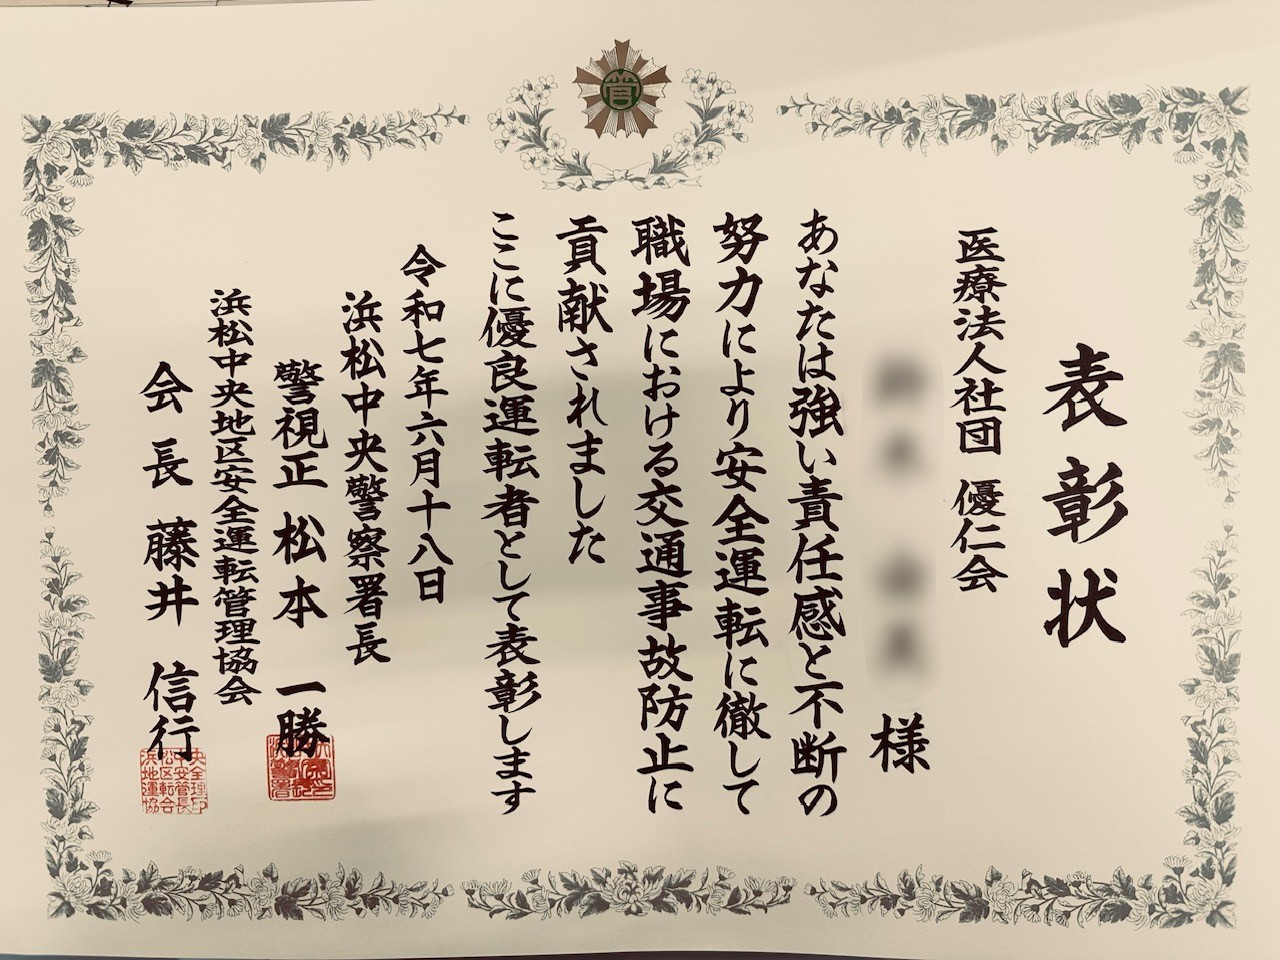 表彰状
医療法人社団 優仁会
様
あなたは強い責任感と不断の
努力により安全運転に徹して
職場における交通事故防止に
貢献されました
ここに優良運転者として表彰します
令和七年六月十八日
浜松中央警察署長
警視正 松本 一勝
浜松中央地区安全運転管理協会
会長 藤井 信行